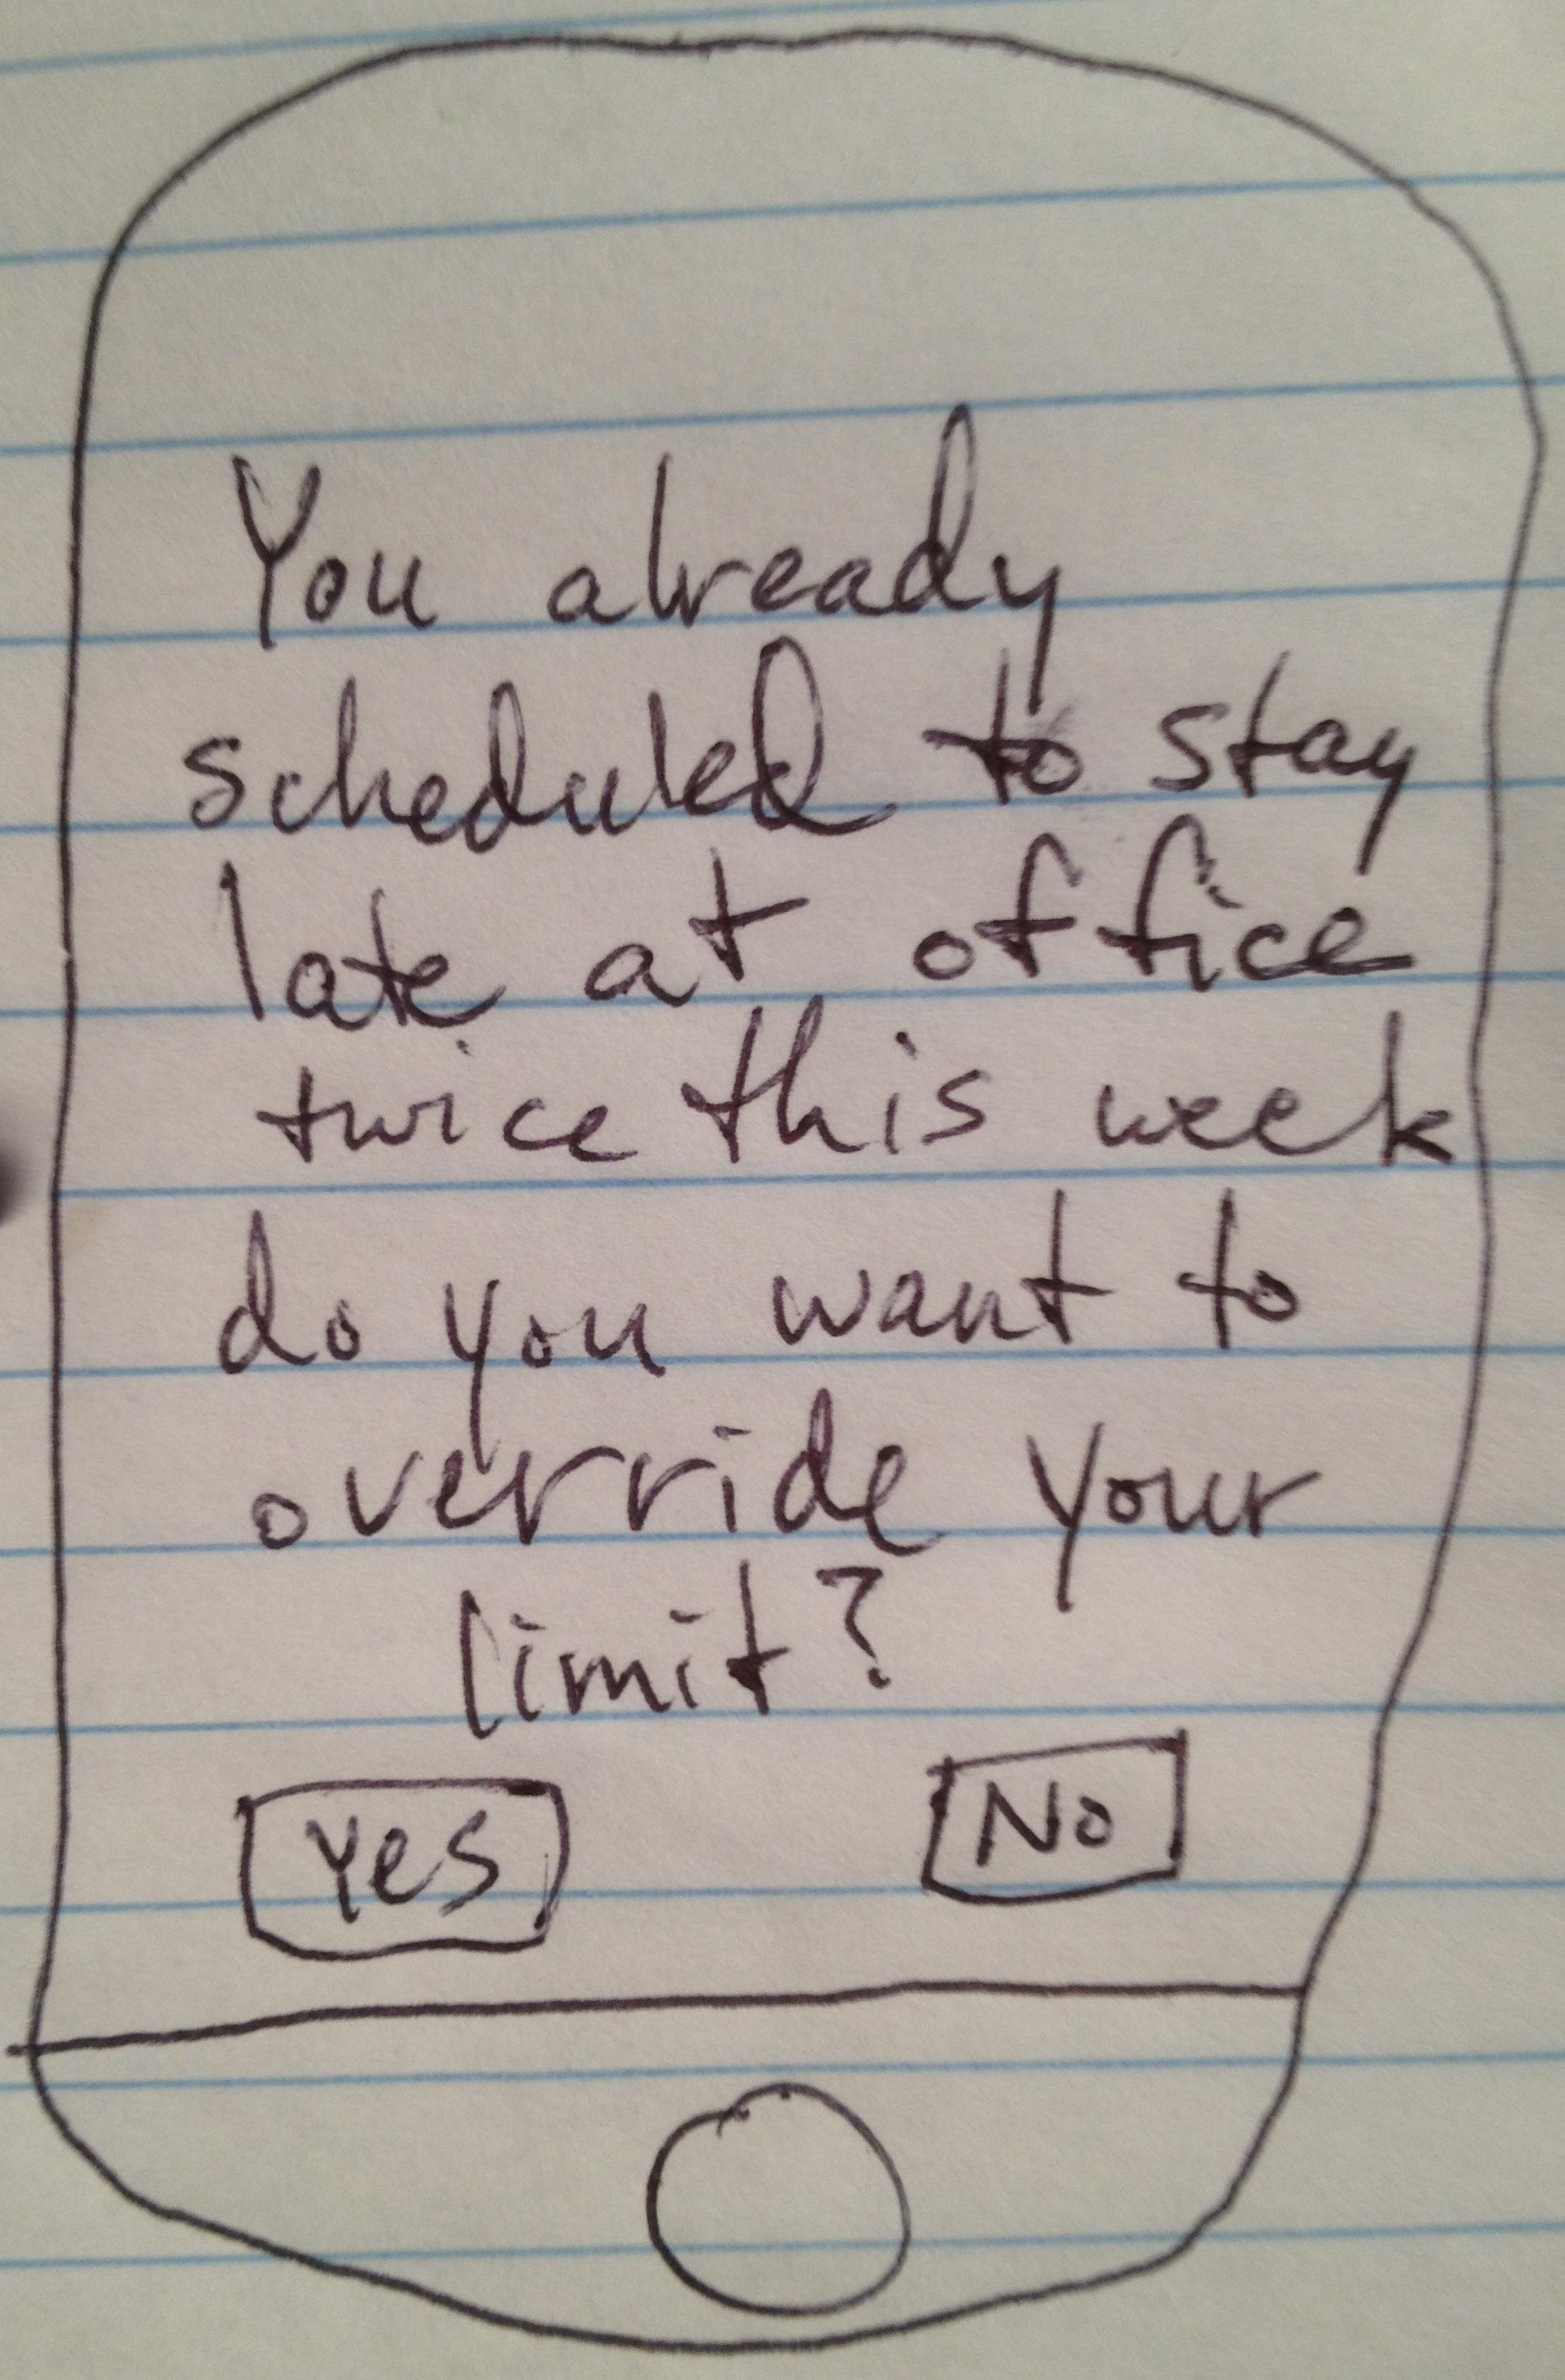 You already
scheduled to stay
late at office
twice this week
do you want to
override your
limit?
Yes No